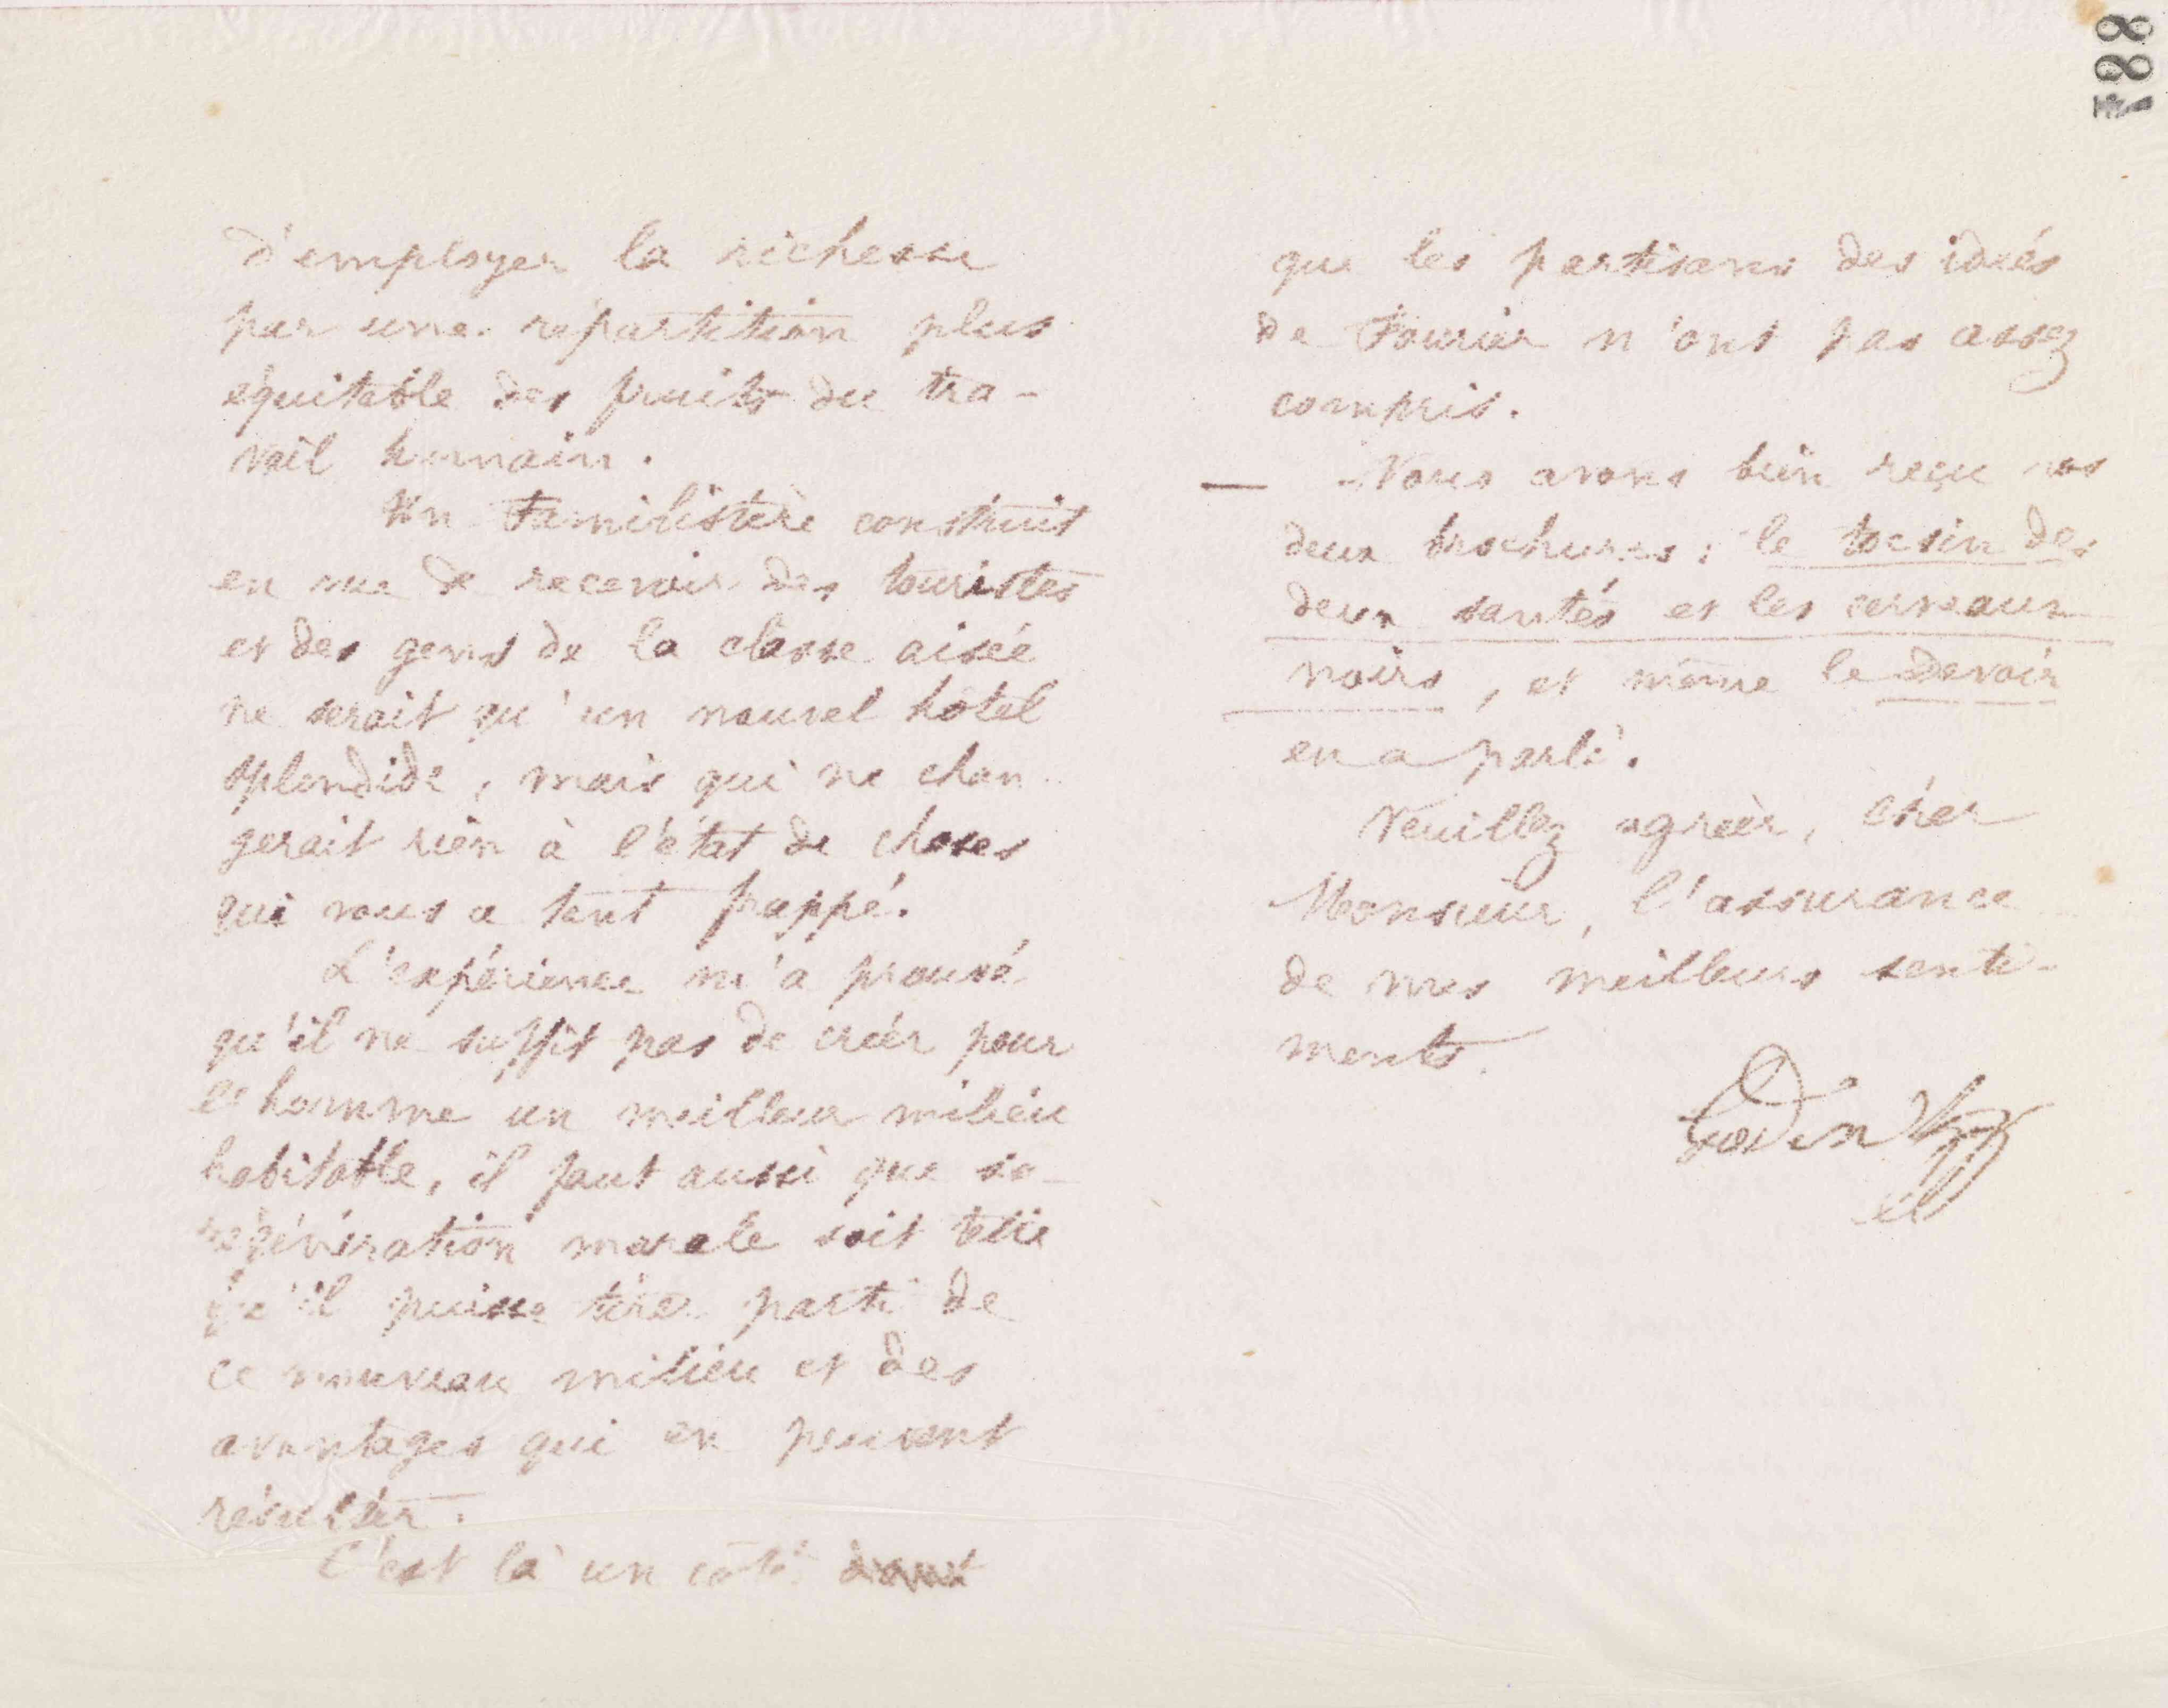 d'employer la richesse
par une répartition plus
équitable des fruits du tra-
vail humain.
Un Familistère construit
en vue de recevoir des touristes
et des gens de la classe aisée
ne serait qu'un nouvel hôtel
splendide, mais qui ne chan-
gerait rien à l'état de choses
qui vous a tant frappé.
L'expérience m'a prouvé
qu'il ne suffit pas de créer pour
l'homme un meilleur milieu
habitable, il faut aussi que sa
régénération morale soit telle
qu'il puisse tirer parti de
ce nouveau milieu et des
avantages qui en peuvent
résulter.
C'est là un côté
que les partisans des idées
de Fourier n'ont pas assez
compris.
— Nous avons bien reçu vos
deux brochures : le tocsin des
deux santés et les cerveaux
noirs, et même le Devoir
en a parlé.
Veuillez agréer, cher
Monsieur, l'assurance
de mes meilleurs senti-
ments.
Godin
881